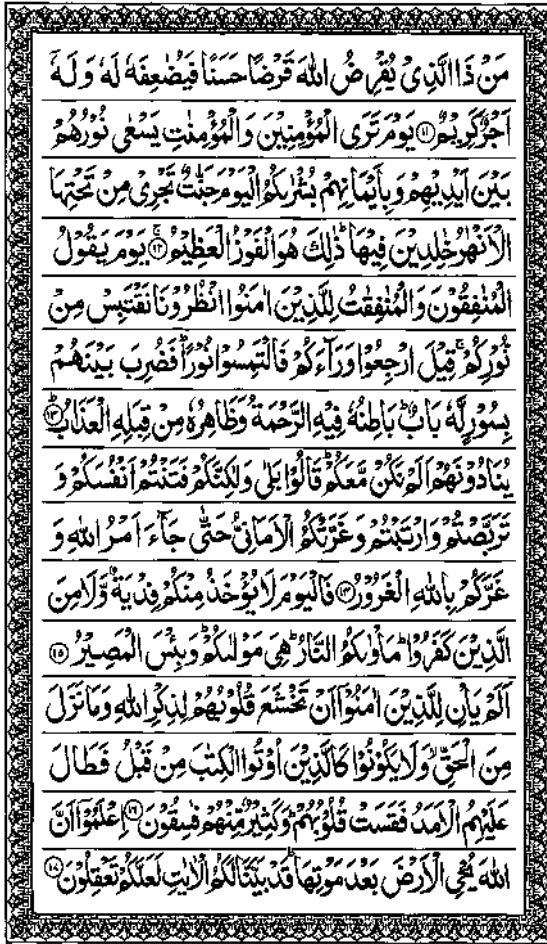 مَنْ ذَا الَّذِيْ يُقْرِضُ اللّٰهَ قَرْضًا حَسَنًا فَيُضٰعِفَهٗ لَهٗ وَ لَهٗۤ
اَجْرٌ كَرِيْمٌ ۝۱۱ يَوْمَ تَرَى الْمُؤْمِنِيْنَ وَالْمُؤْمِنٰتِ يَسْعٰى نُوْرُهُمْ
بَيْنَ اَيْدِيْهِمْ وَبِاَيْمَانِهِمْ بُشْرٰىكُمُ الْيَوْمَ جَنّٰتٌ تَجْرِيْ مِنْ تَحْتِهَا
الْاَنْهٰرُ خٰلِدِيْنَ فِيْهَا ؕ ذٰلِكَ هُوَ الْفَوْزُ الْعَظِيْمُ ۝۱۲ۚ يَوْمَ يَقُوْلُ
الْمُنٰفِقُوْنَ وَالْمُنٰفِقٰتُ لِلَّذِيْنَ اٰمَنُوا انْظُرُوْنَا نَقْتَبِسْ مِنْ
نُّوْرِكُمْ ۚ قِيْلَ ارْجِعُوْا وَرَآءَكُمْ فَالْتَمِسُوْا نُوْرًا ؕ فَضُرِبَ بَيْنَهُمْ
بِسُوْرٍ لَّهٗ بَابٌ ؕ بَاطِنُهٗ فِيْهِ الرَّحْمَةُ وَظَاهِرُهٗ مِنْ قِبَلِهِ الْعَذَابُ ۝۱۳ؕ
يُنَادُوْنَهُمْ اَلَمْ نَكُنْ مَّعَكُمْ ؕ قَالُوْا بَلٰى وَلٰكِنَّكُمْ فَتَنْتُمْ اَنْفُسَكُمْ وَ
تَرَبَّصْتُمْ وَارْتَبْتُمْ وَغَرَّتْكُمُ الْاَمَانِيُّ حَتّٰى جَآءَ اَمْرُ اللّٰهِ وَ
غَرَّكُمْ بِاللّٰهِ الْغَرُوْرُ ۝۱۴ فَالْيَوْمَ لَا يُؤْخَذُ مِنْكُمْ فِدْيَةٌ وَّلَا مِنَ
الَّذِيْنَ كَفَرُوْا ؕ مَاْوٰىكُمُ النَّارُ ؕ هِيَ مَوْلٰىكُمْ ؕ وَبِئْسَ الْمَصِيْرُ ۝۱۵
اَلَمْ يَاْنِ لِلَّذِيْنَ اٰمَنُوْۤا اَنْ تَخْشَعَ قُلُوْبُهُمْ لِذِكْرِ اللّٰهِ وَمَا نَزَلَ
مِنَ الْحَقِّ ۙ وَلَا يَكُوْنُوْا كَالَّذِيْنَ اُوْتُوا الْكِتٰبَ مِنْ قَبْلُ فَطَالَ
عَلَيْهِمُ الْاَمَدُ فَقَسَتْ قُلُوْبُهُمْ ؕ وَكَثِيْرٌ مِّنْهُمْ فٰسِقُوْنَ ۝۱۶ اِعْلَمُوْۤا اَنَّ
اللّٰهَ يُحْيِ الْاَرْضَ بَعْدَ مَوْتِهَا ؕ قَدْ بَيَّنَّا لَكُمُ الْاٰيٰتِ لَعَلَّكُمْ تَعْقِلُوْنَ ۝۱۷